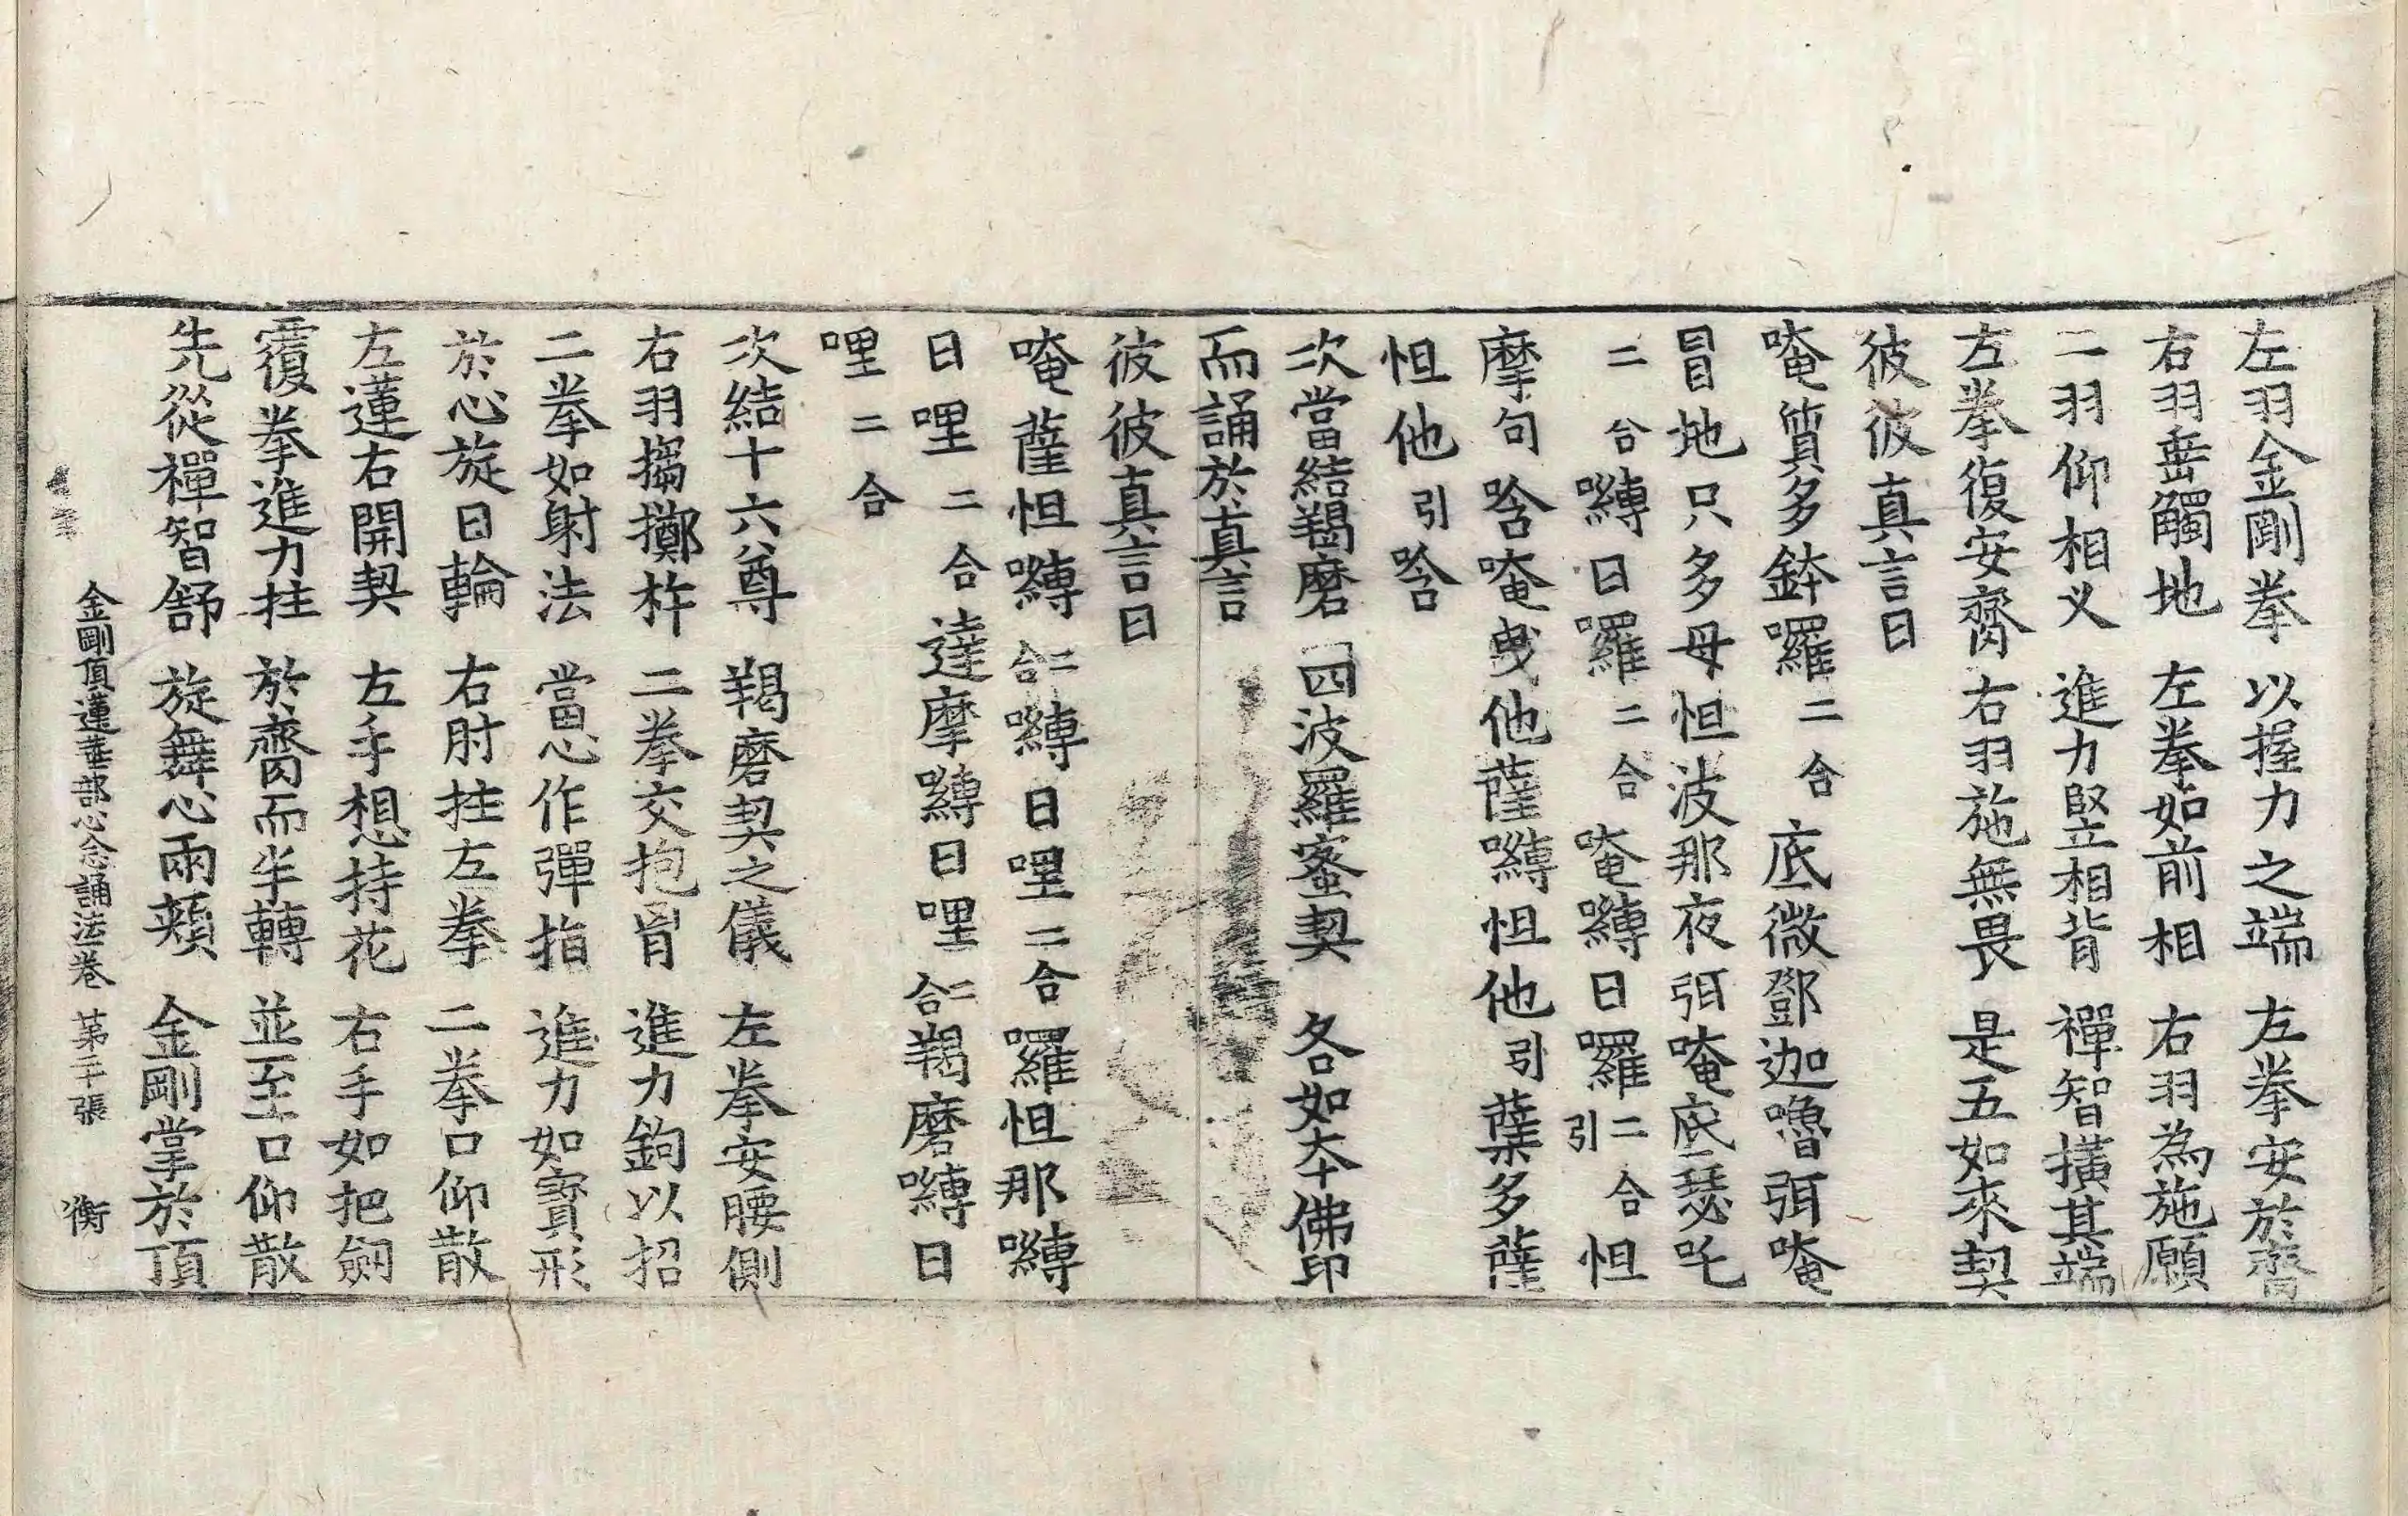 左羽金剛拳 以握力之端 左拳安於齊
右羽垂觸地 左拳如前相 右羽為施願
二羽仰相叉 進力竪相背 禪智横其端
左拳復安齊 右羽施無畏 是五如來契
彼彼真言曰
唵質多鉢囉二合底微鄧迦嚕弭唵
冒地只多母怛波那夜弭唵底瑟吒
二合嚩日囉二合唵嚩日囉二合引怛
摩句唅唵曳他薩嚩怛他引蘖多薩
怛他引唅
次當結羯磨 四波羅蜜契 各如本佛印
而誦於真言
彼彼真言曰
唵薩怛嚩二合嚩日哩二合囉怛那嚩
日哩二合達摩嚩日哩二合羯磨嚩日
哩二合
次結十六尊 羯磨契之儀 左拳安腰側
右羽搊擲杵 二拳交抱胷 進力鉤以招
二拳如射法 當心作彈指 進力如寳形
於心旋日輪 右肘拄左拳 二拳口仰散
左蓮右開契 左手想持花 右手如把劒
覆拳進力拄 於齊而半轉 並至口仰散
先從禪智舒 旋舞心兩頰 金剛掌於頂
金剛頂蓮華部心念誦法一卷 第二十張 衡